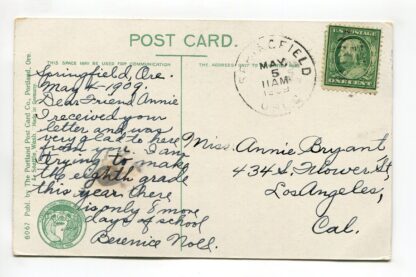 POST CARD.
THIS SPACE MAY BE USED FOR COMMUNICATION
THE ADDRESS ONLY TO BE
Springfield, Ore.
May 4-1909.
Dear Friend Annie
I received your
letter and was
very glad to hear
from you. I am
trying to make
the eighth grade
this year there
is only 8 more
days of school
Berenice Noll.
SPRINGFIELD
MAY
5
11AM
1909
ORE.
U.S. POSTAGE
ONE CENT
Miss Annie Bryant
434 S. Flower St
Los Angeles,
Cal.
6067 Publ. by The Portland Post Card Co., Portland, Ore.